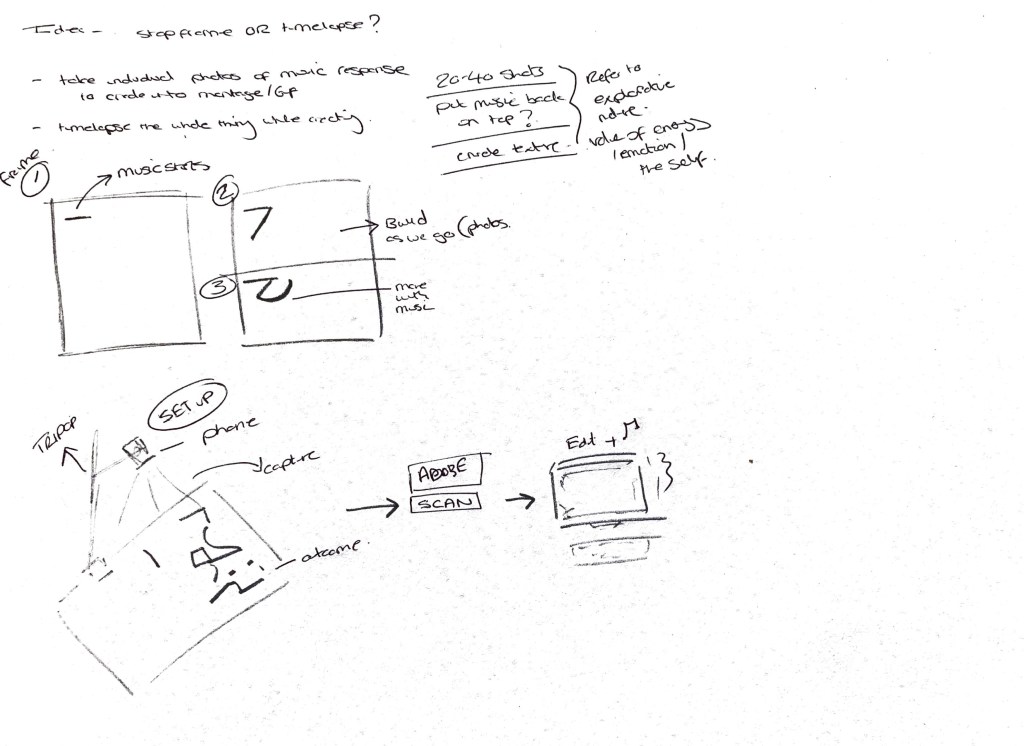 Idea - stopframe OR timelapse?
- take individual photos of music response
to circle into montage/GIF
- timelapse the whole thing while creating.
20-40 shots
put music back
on top?
crude
Refer to
explorative
nature.
value of energy
/emotion/
the self.
frame
1
music starts
2
Build
as we go (photos.
3
move
with
music
SET UP
TRIPOD
phone
capture
outcome.
ADOBE
SCAN
Edit +